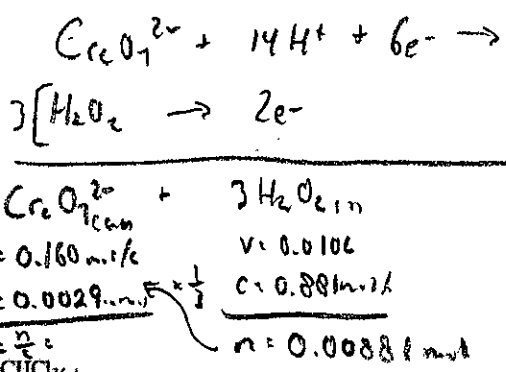 Cr₂O₇²⁻ + 14H⁺ + 6e⁻ →
3[H₂O₂ → 2e-
Cr₂O₇²⁻ + 3H₂O₂
= 0.160 mol/L V: 0.010L
= 0.0029 mol × 1/3 C: 0.881 mol/L
= n/c = n = 0.00881 mol